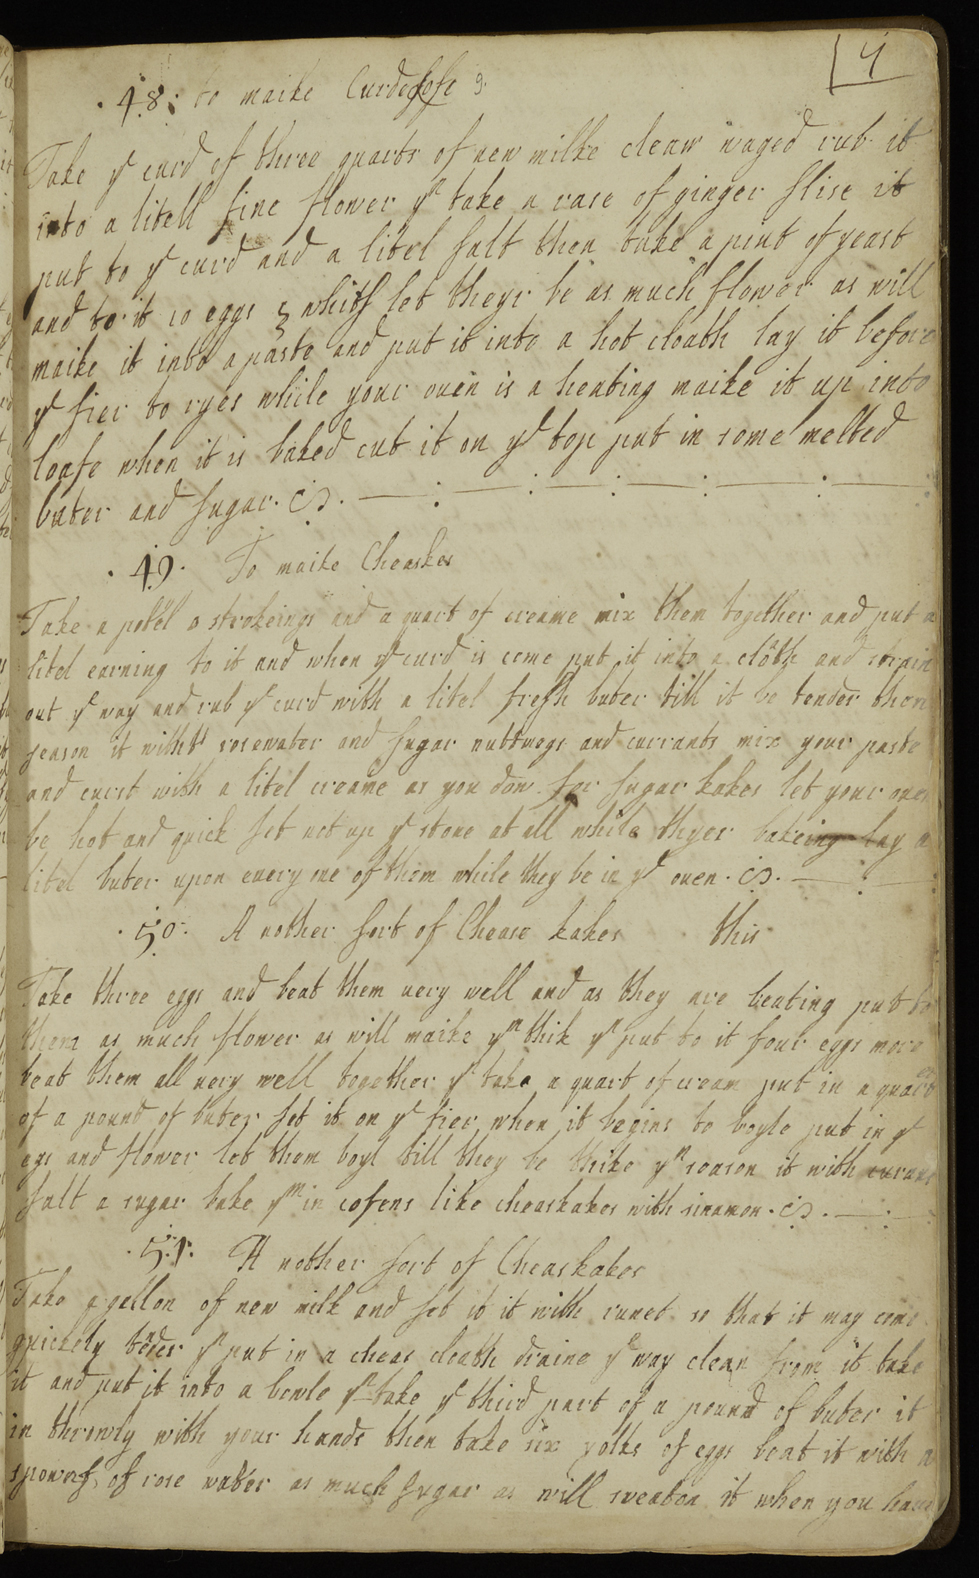 4
. 48 : to maike Curde lofe 9.
Take yᵉ curd of three quarts of new milke clean waged rub it
into a litell fine flower yⁿ take a rase of ginger slise it
put to yᵉ curd and a litel salt then take a pint of yeast
and to it 10 eggs 5 whits let theyr be as much flower as will
maike it into a paste and put it into a hot cloath lay it before
yᵉ fier to ryes while your oven is a heating maike it up into
loafe when it is baked cut it on yᵉ top put in some melted
buter and sugar.
. 49. To maike Cheaskes
Take a potel o strokeings and a quart of creame mix them together and put a
litel earning to it and when yᵉ curd is come put it into a cloth and strain
out yᵉ way and rub yᵉ curd with a litel fresh buter till it be tender then
season it with rosewater and sugar nuttmegs and currants mix your paste
and curst with a litel creame as you dow for sugar kakes let your oven
be hot and quick set not up yᵉ stone at all while theyer bakeing lay a
litel buter upon every one of them while they be in yᵉ oven.
. 50. A nother sort of Chease kakes this
Take three eggs and beat them very well and as they are beating put to
them as much flower as will maike yᵐ thik yⁿ put to it four eggs more
beat them all very well together yⁿ take a quart of cream put in a quarter
of a pound of buter set it on yᵉ fier when it begins to boyle put in yᵉ
egs and flower let them boyl till they be thike yⁿ season it with curans
salt a sugar bake yᵐ in cofens like cheaskakes with sinamon.
. 51. A nother sort of Cheaskakes
Take a gellon of new milk and set it it with runet so that it may come
quickely tender yⁿ put in a cheas cloath draine yᵉ way clean from it take
it and put it into a bowle yⁿ take yᵉ third part of a pound of buter it
in throwly with your hands then take six yolks of eggs beat it with a
of rose water as much sugar as will sweaton it when you have